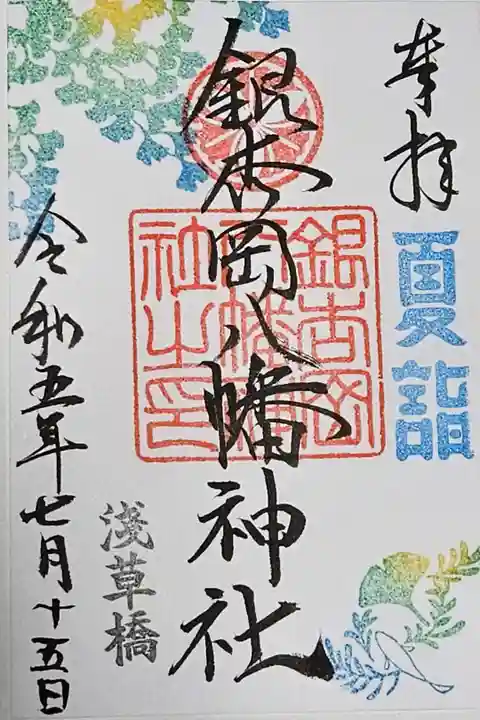 奉拝
夏詣
銀杏岡八幡神社
銀杏岡八幡神社之印
浅草橋
令和五年七月十五日